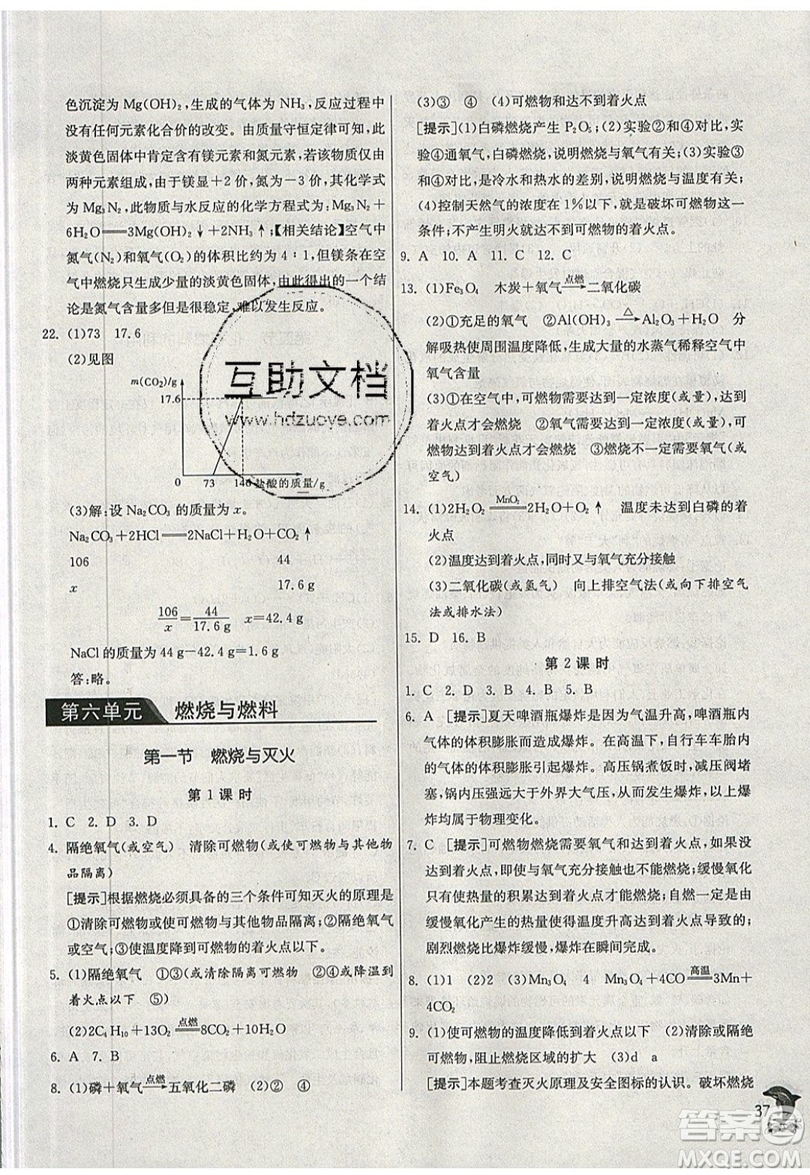 色沉淀为 Mg(OH)₂,生成的气体为 NH₃,反应过程中
没有任何元素化合价的改变。由质量守恒定律可知,此
淡黄色固体中肯定含有镁元素和氮元素,若该物质仅由
两种元素组成,由于镁显+2 价,氮显-3 价,其化学式
为 Mg₃N₂,此物质与水反应的化学方程式为 Mg₃N₂+
6H₂O══3Mg(OH)₂↓+2NH₃↑;【相关结论】空气中
氮气(N₂)和氧气(O₂)的体积比约为 4∶1,但镁条在空
气中燃烧只生成少量的淡黄色固体,由此得出的一个结
论是氮气虽然很稳定,难以发生反应。
22. (1)73 17.6
(2)见图
m(CO₂)/g
17.6
0 73 146 盐酸的质量/g
(3)解:设 Na₂CO₃ 的质量为 x。
Na₂CO₃+2HCl══2NaCl+H₂O+CO₂↑
106 44
x 17.6 g
106/x=44/17.6 g x=42.4 g
NaCl 的质量为 44 g-42.4 g=1.6 g
答:略。
第六单元 燃烧与燃料
第一节 燃烧与灭火
第 1 课时
1. C 2. D 3. D
4. 隔绝氧气(或空气) 清除可燃物(或使可燃物与其他物
品隔离)
[提示]根据燃烧必须具备的三个条件可知灭火的原理是
①清除可燃物或使可燃物与其他物品隔离;②隔绝氧气
或空气;③使温度降到可燃物的着火点以下。
5. (1)隔绝氧气 ①③(或清除可燃物 ②④或降温到
着火点以下 ⑤)
(2)2C₄H₁₀+13O₂ 点燃══ 8CO₂+10H₂O
6. A 7. B
8. (1)磷+氧气 点燃→ 五氧化二磷 (2)② ④
(3)③ ④ (4)可燃物和达不到着火点
[提示](1)白磷燃烧产生 P₂O₅;(2)实验②和④对比,实
验④通氧气,白磷燃烧,说明燃烧与氧气有关;(3)实验③
和④对比,是冷水和热水的差别,说明燃烧与温度有关;
(4)控制天然气的浓度在 1%以下,就是破坏可燃物这一
条件;不产生明火就达不到可燃物的着火点。
9. A 10. A 11. C 12. C
13. (1)Fe₃O₄ 木炭+氧气 点燃→ 二氧化碳
(2)①充足的氧气 ②Al(OH)₃ △→ Al₂O₃+H₂O 分
解吸热使周围温度降低,生成大量的水蒸气稀释空气中
氧气含量
(3)①在空气中,可燃物需要达到一定浓度(或量),达到
着火点才会燃烧 ②可燃物需要达到一定浓度(或量),可
燃物达到着火点才会燃烧 ③燃烧不一定需要氧气(或
空气)
14. (1)2H₂O₂ MnO₂══ 2H₂O+O₂↑ 温度未达到白磷的着
火点
(2)温度达到着火点,同时又与氧气充分接触
(3)二氧化碳(或氢气) 向上排空气法(或向下排空气
法或排水法)
15. D 16. B
第 2 课时
1. C 2. D 3. C 4. D 5. B
6. A [提示]夏天啤酒瓶爆炸是因为气温升高,啤酒瓶内
气体的体积膨胀而发生爆炸。在高温下,自行车车胎内
气体体积膨胀引起爆炸。高压锅煮饭时,减压阀堵
塞,锅内压强远大于外界大气压,可以发生爆炸。以上爆
炸均属于物理变化。
7. C [提示]可燃物燃烧要氧气和达到着火点,如果没
达到着火点,即使与氧气充分接触也不能燃烧;缓慢氧化
只有达到着火点才能燃烧,而大量的自燃现象是由
缓慢氧化产生的热量使得温度升高达到着火点导致的;
剧烈燃烧比爆炸缓慢,爆炸在瞬间完成。
8. (1)1 (2)2 (3)Mn₃O₄ Mn₃O₄+4CO 高温══ 3Mn+
4CO₂
9. (1)使可燃物的温度降低到着火点以下 (2)清除或隔绝
可燃物,阻止燃烧区域的扩大 (3)d a
[提示]本题考查灭火原理及安全图标的认识。破坏燃烧
37
互助文档
www.hdzuoye.com
答案圈
MXQE.COM